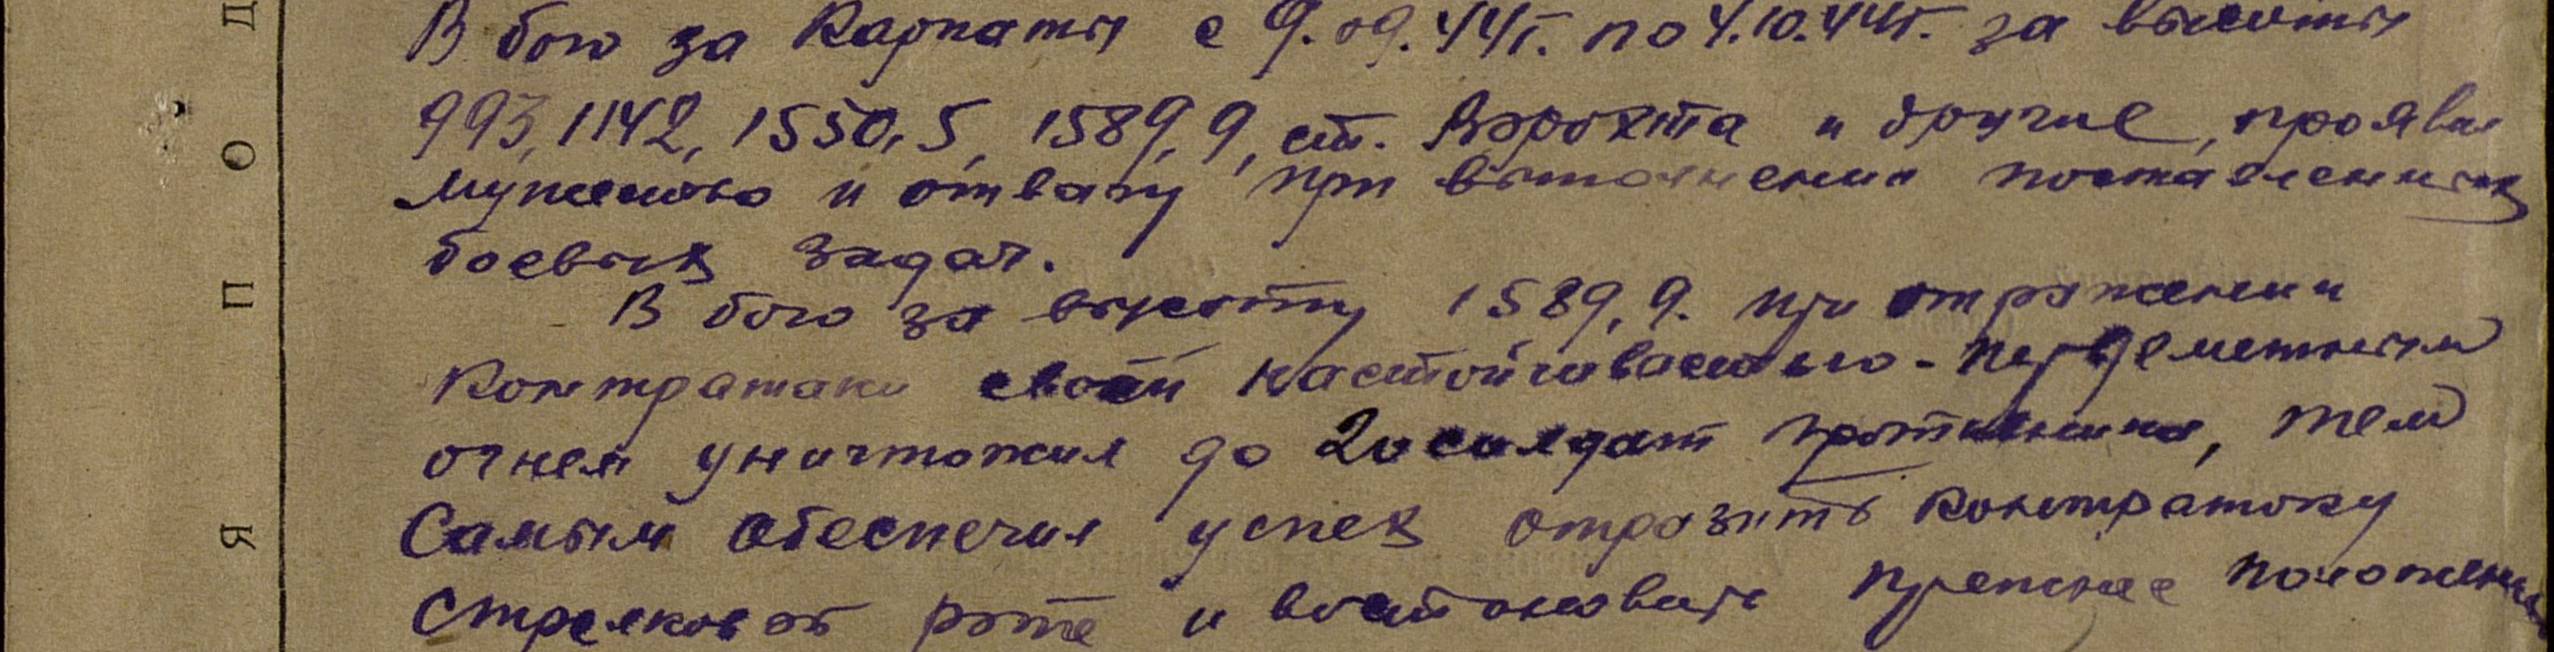 В бою за Карпаты с 9.09.44г. по 4.10.44г. за высоты
993, 1142, 1550,5, 1589,9, ст. Ворохта и другие, проявил
мужество и отвагу при выполнении поставленных
боевых задач.
В бою за высоту 1589,9. при отражении
контратаки своей настойчивостью -
огнем уничтожил до 20 солдат противника, тем
самым обеспечил успех отразить контратаку
стрелковой роте и востоновить прежнее положение
Я П О Д